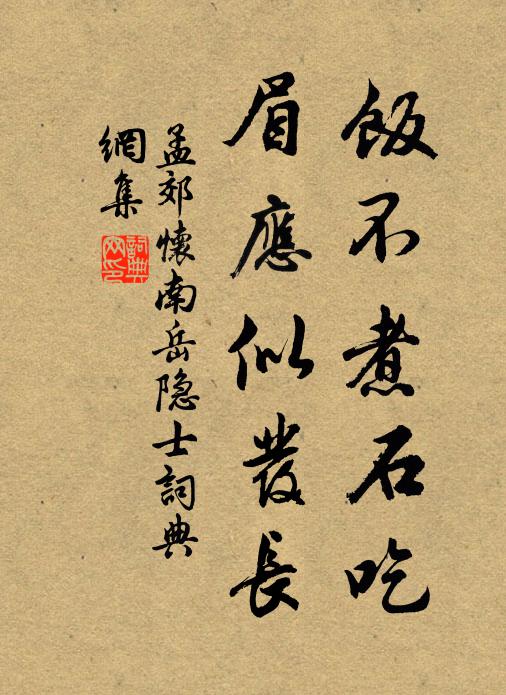 飯不煮石吃
眉應似發長
孟郊懷南岳隐士詞典
網集
詞典
网印